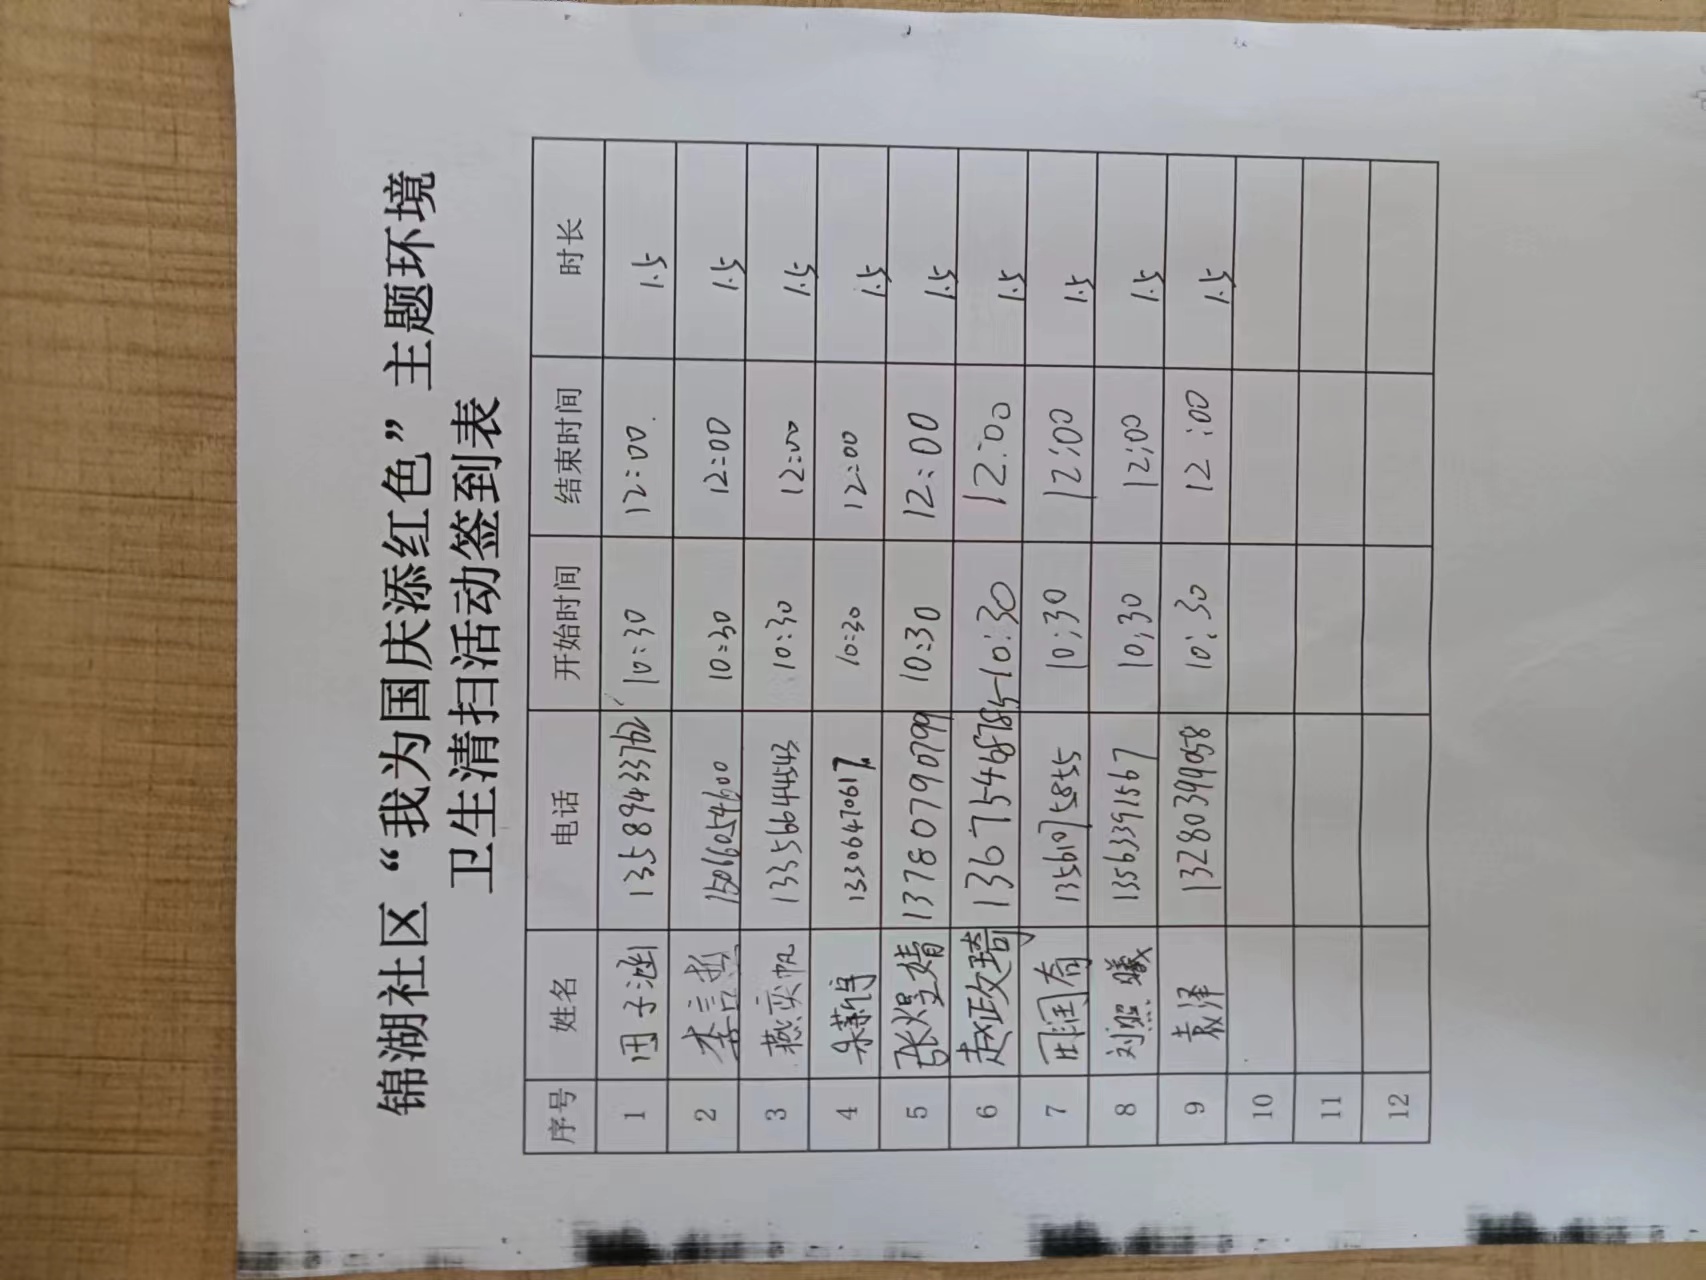 锦湖社区“我为国庆添红色”主题环境
卫生清扫活动签到表
序号 姓名 电话 开始时间 结束时间 时长
1 田子涵 13589433762 10:30 12:00 1.5
2 李言哲 15066054600 10:30 12:00 1.5
3 燕奕帆 13356644543 10:30 12:00 1.5
4 13306470617 10:30 12:00 1.5
5 张煜婧 13780790799 10:30 12:00 1.5
6 赵政琦 13675468785 10:30 12:00 1.5
7 13561075855 10:30 12:00 1.5
8 刘照曦 13563391567 10:30 12:00 1.5
9 袁泽 13280399058 10:30 12:00 1.5
10
11
12